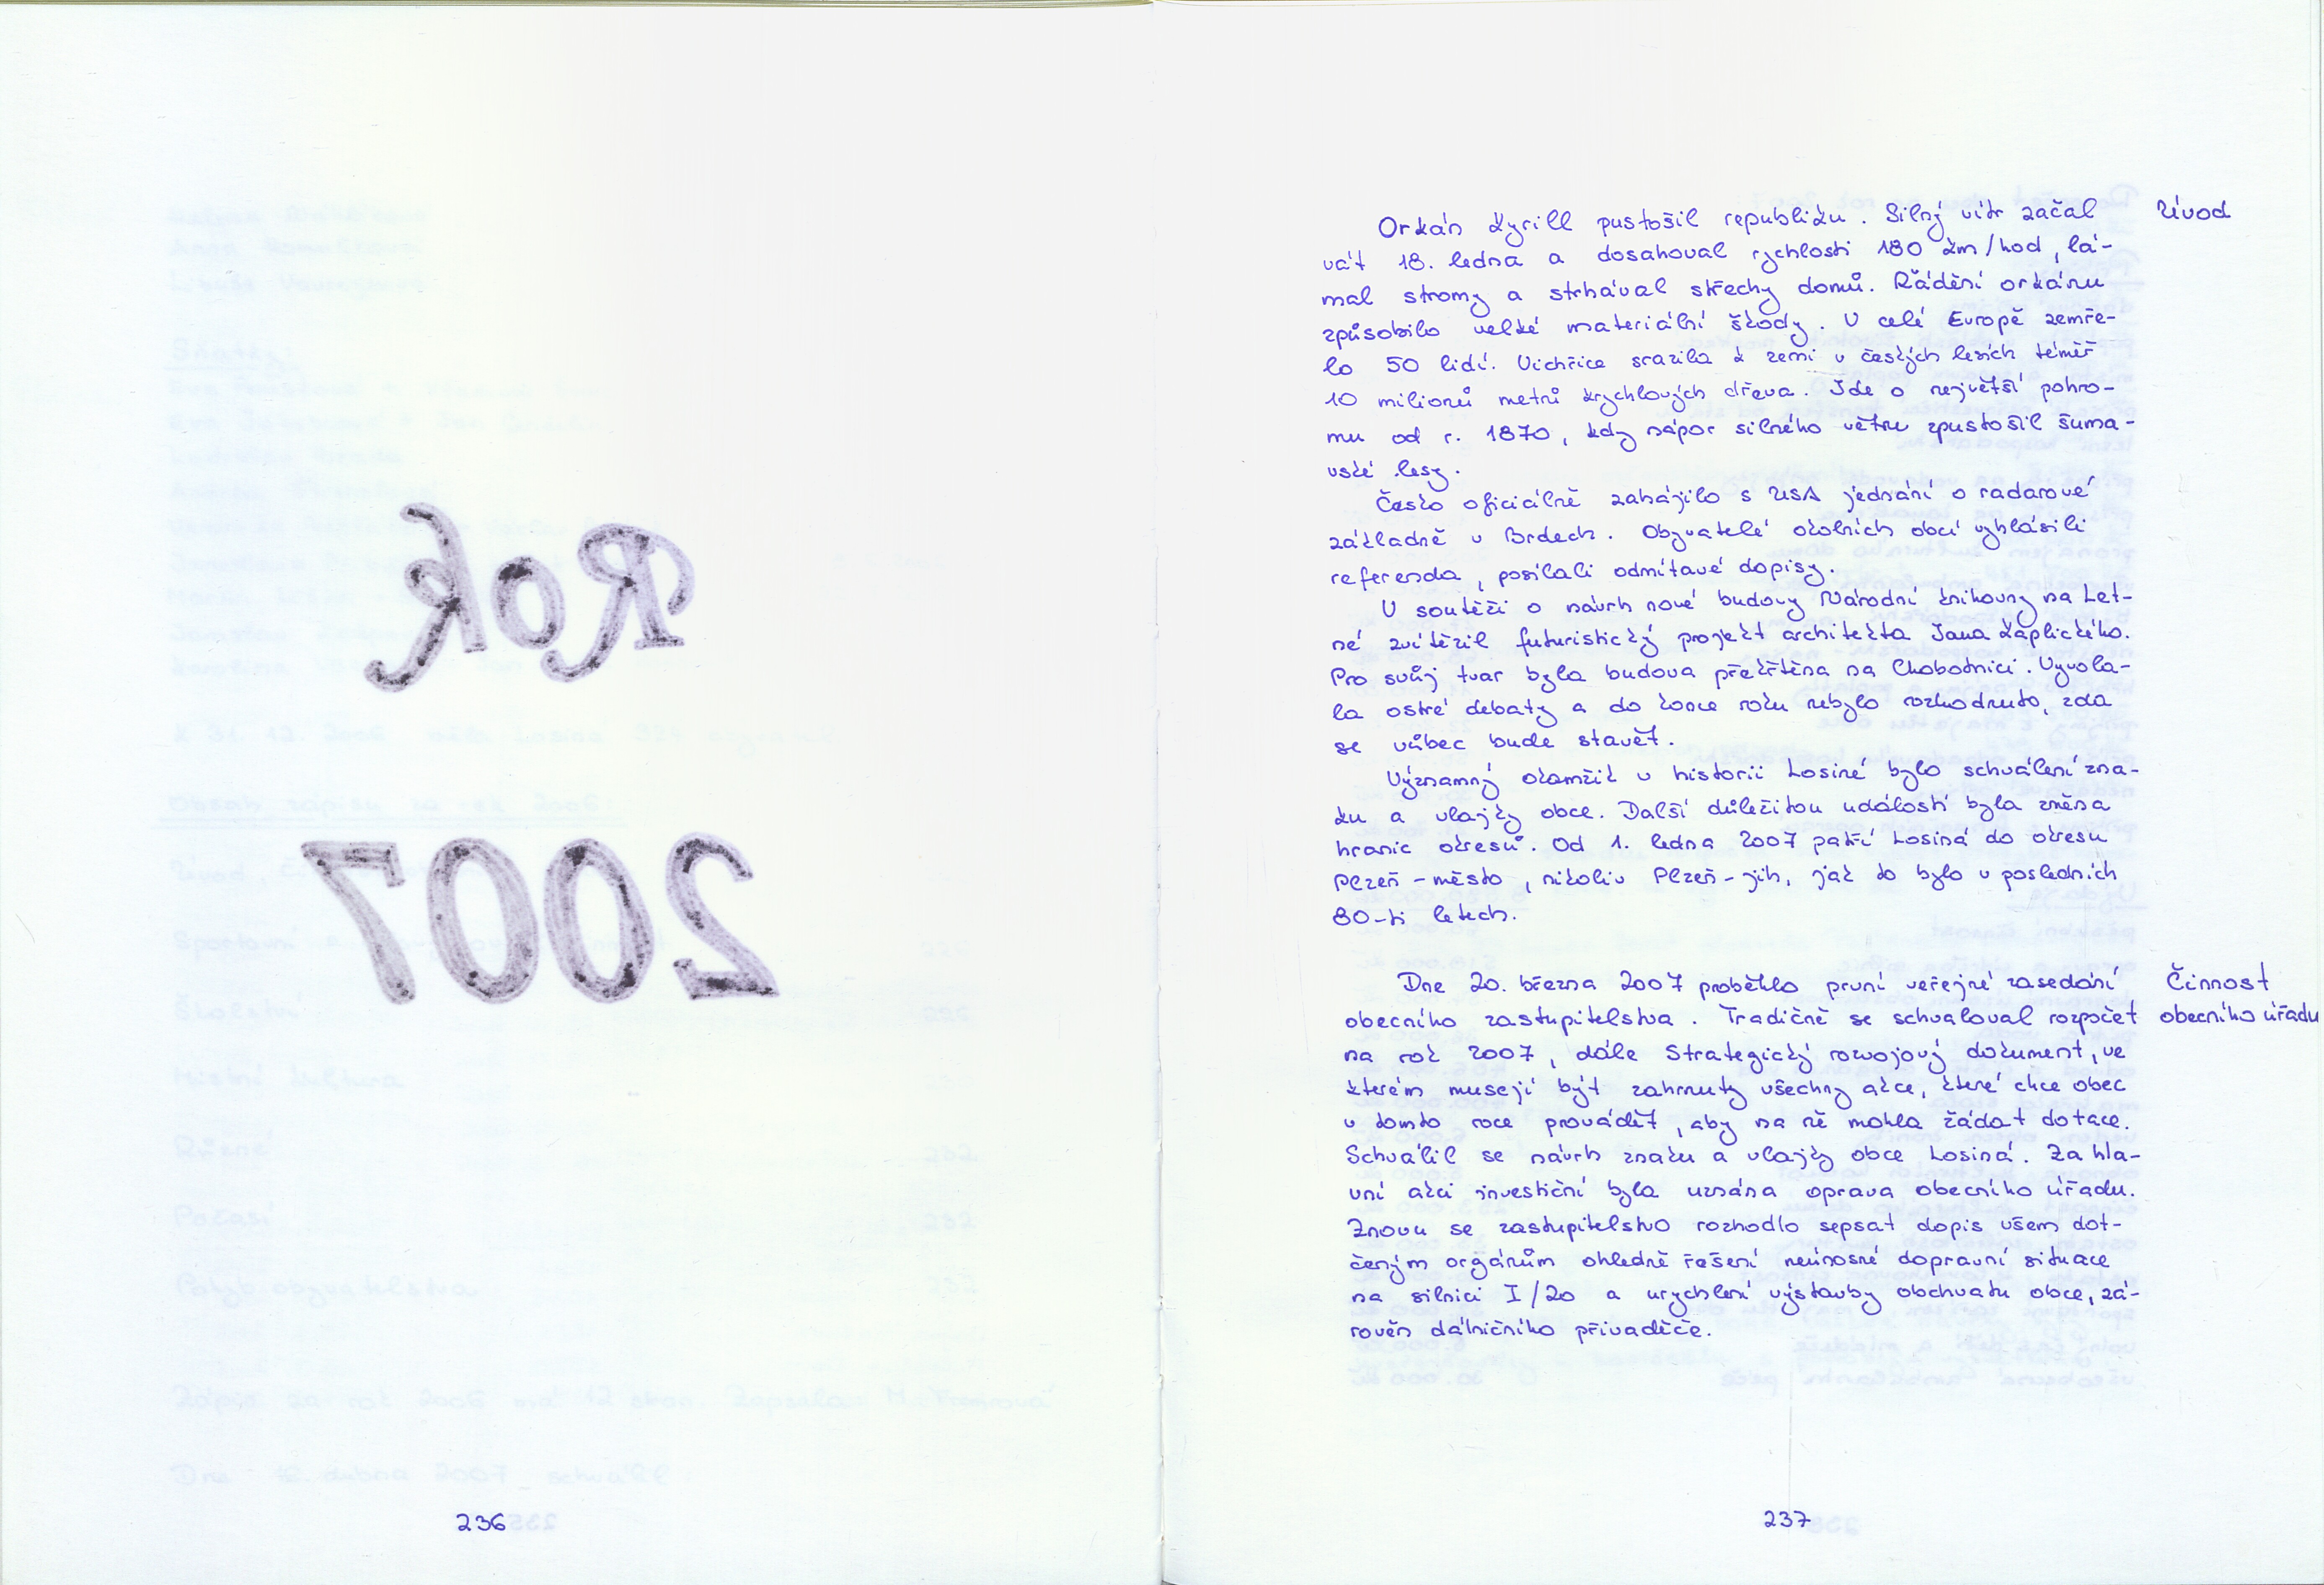 Rok
2007
236
Orkán Kyrill pustošil republiku. Silný vítr začal
Úvod
vát 18. ledna a dosahoval rychlosti 180 km/hod, lá-
mal stromy a strhával střechy domů. Řádění orkánu
způsobilo velké materiální škody. V celé Evropě zemře-
lo 50 lidí. Vichřice srazila k zemi v českých lesích téměř
10 milionů metrů krychlových dřeva. Jde o největší pohro-
mu od r. 1870, kdy nápor silného větru zpustošil šuma-
vské lesy.
Česko oficiálně zahájilo s USA jednání o radarové
základně v Brdech. Obyvatelé okolních obcí vyhlásili
referenda, posílali odmítavé dopisy.
V soutěži o návrh nové budovy Národní knihovny na Let-
né zvítězil futuristický projekt architekta Jana Kaplického.
Pro svůj tvar byla budova překřtěna na Chobotnici. Vyvola-
la ostré debaty a do konce roku nebylo rozhodnuto, zda
se vůbec bude stavět.
Významný okamžik v historii Losiné bylo schválení zna-
ku a vlajky obce. Další důležitou událostí byla změna
hranic okresů. Od 1. ledna 2007 patří Losiná do okresu
Plzeň - město, nikoliv Plzeň - jih, jak to bylo v posledních
80-ti letech.
Dne 20. března 2007 proběhlo první veřejné zasedání
Činnost
obecního zastupitelstva. Tradičně se schvaloval rozpočet
obecního úřadu
na rok 2007, dále Strategický rozvojový dokument, ve
kterém musejí být zahrnuty všechny akce, které chce obec
v tomto roce provádět, aby na ně mohla žádat dotace.
Schválil se návrh znaku a vlajky obce Losiná. Za hla-
vní akci investiční byla uznána oprava obecního úřadu.
Znovu se zastupitelstvo rozhodlo sepsat dopis všem dot-
čeným orgánům ohledně řešení neúnosné dopravní situace
na silnici I/20 a urychlení výstavby obchvatu obce, zá-
roveň dálničního přivaděče.
237